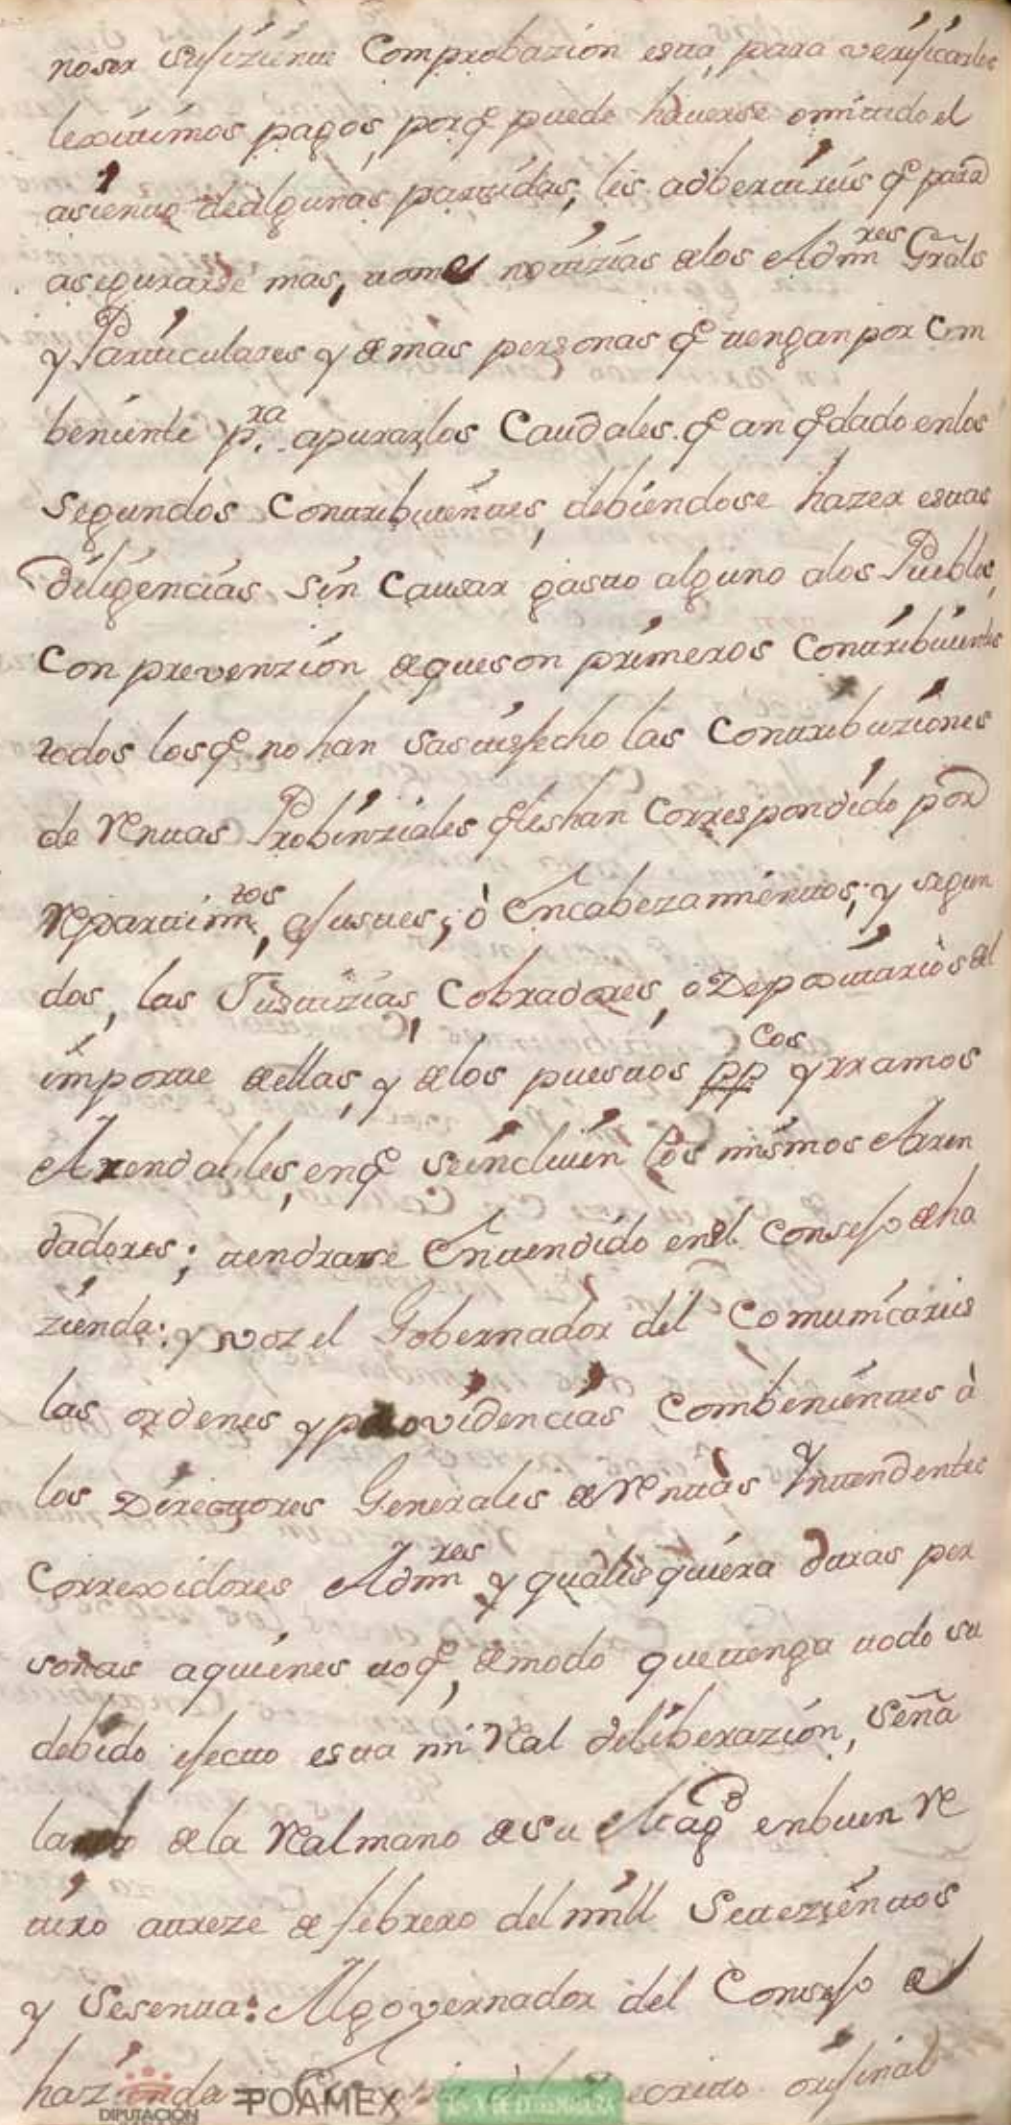 noser sufiziente Comprobazion esta, para verificarlos
lexitimos pagos, porq̃ puede haverse omitido el
asiento dealgunas partidas, les adbertireis q̃ para
asegurarse mas, tome notizias delos Admres Grãls
y Particulares y demas personas q̃ tengan por Com
beniente p.ra apurarlos Caudales q̃ an q̃dado enlos
Segundos Contribuientes, debiendose hazer estas
diligencias sin Causar gasto alguno alos Pueblos,
Con prevenzion dequeson primeros Contribuientes
todos losq̃ no han satisfecho las Contribuziones
de Rentas Probinziales q̃leshan Correspondido por
Repartimtos, ajustes, ò Encabezamientos; y segun
dos, las Justizias, Cobradores, o Depositarios del
importe dellas, y delos puestos ppcos yrramos
Arrendables, enq̃ seincluien los mismos Arren
dadores; tendrase Entendido enel Consejo deha
zienda: y voz el Gobernador del Comunicareis
las ordenes yprovidencias Combenientes à
los Directores Generales de Rentas Yntendentes
Correxidores Admres y qualesquiera otras per
sonas aquienes toq̃, demodo quetenga todo su
debido efecto esta mi Real deliberazion, Señã
lado dela Realmano desu Magd enbuen Re
tiro atreze de febrero del mill Setezientos
y Sesenta: Algovernador del Consejo de
hazienda decreto orijinal
DIPUTACIÓN
POAMEX